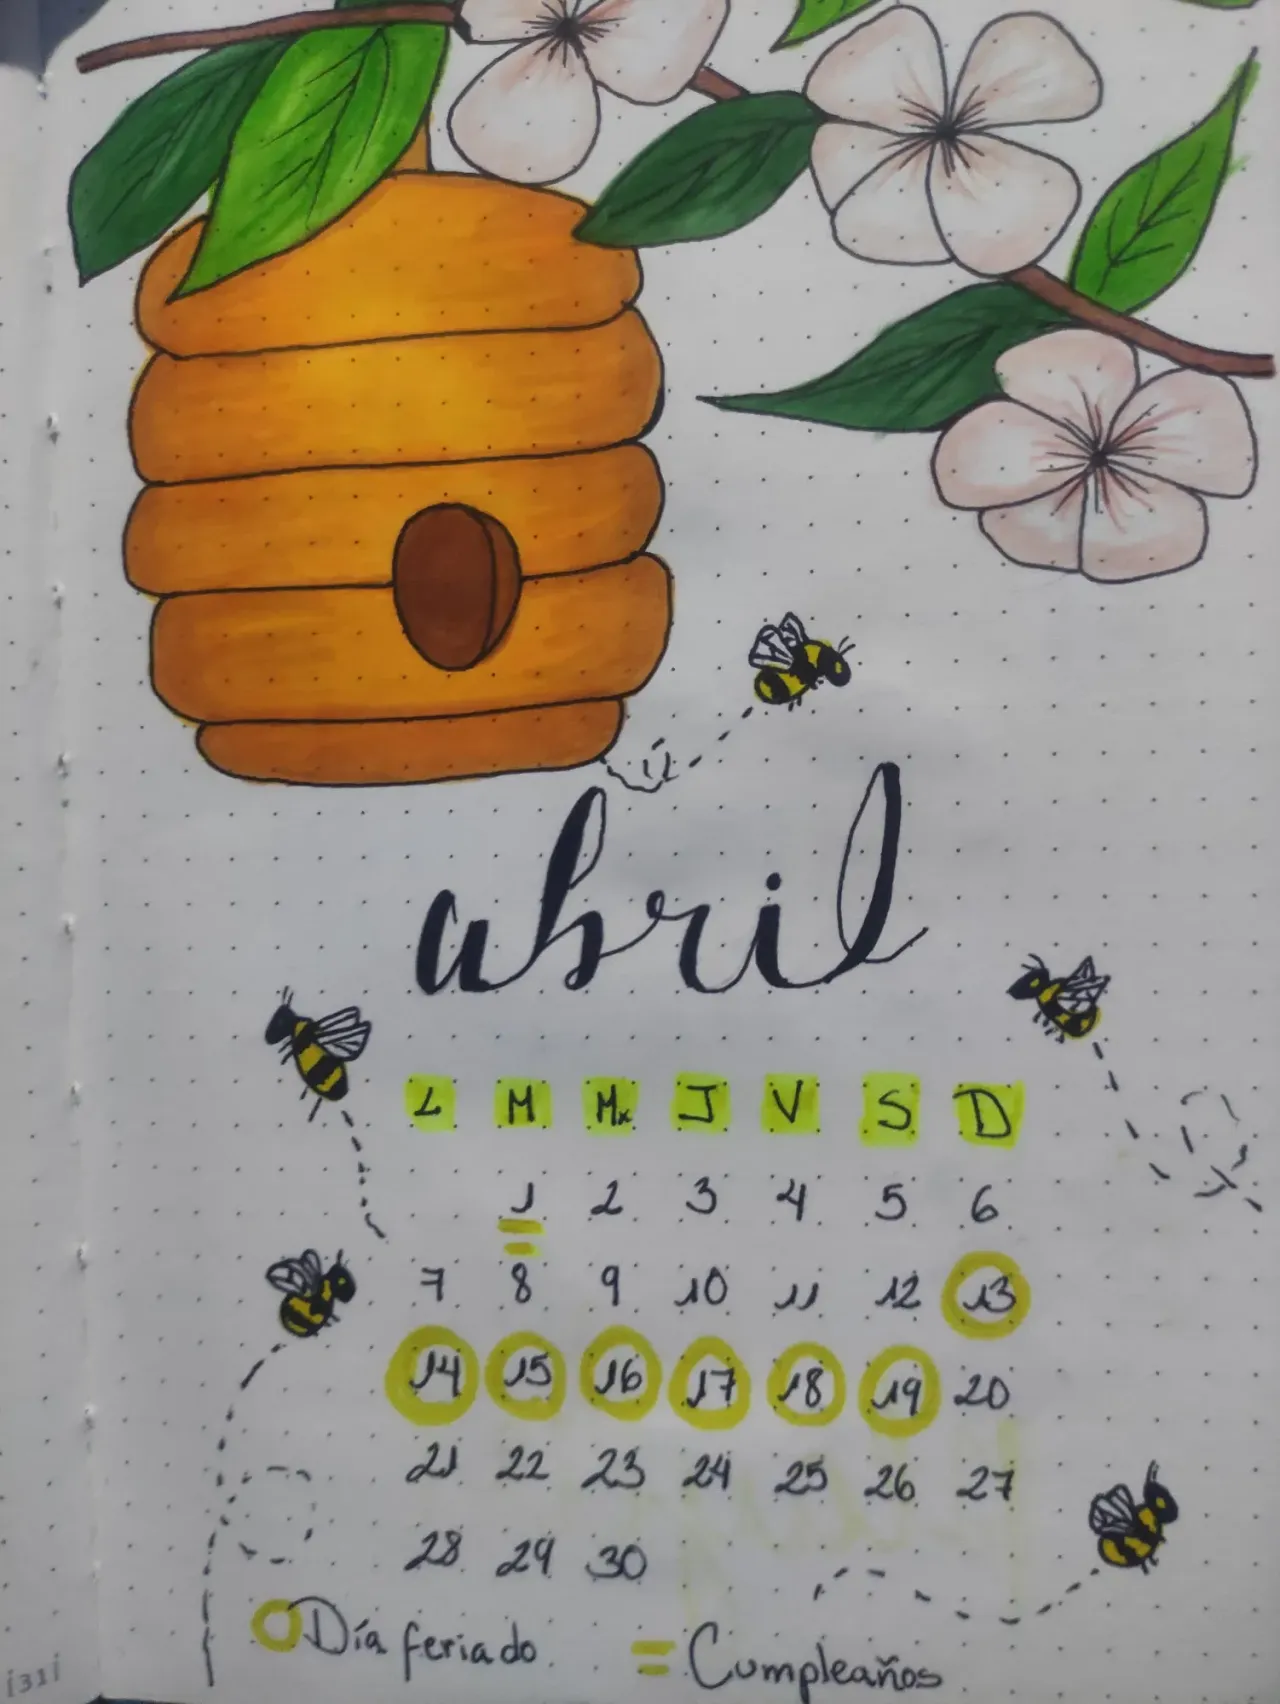 abril
L M Mx J V S D
1 2 3 4 5 6
7 8 9 10 11 12 13
14 15 16 17 18 19 20
21 22 23 24 25 26 27
28 29 30
Día feriado = Cumpleaños